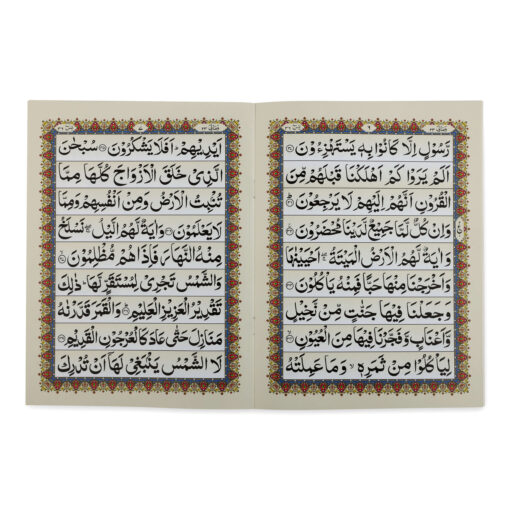 رَّسُوْلٍ اِلَّا كَانُوْا بِهٖ يَسْتَهْزِءُوْنَ ﴿۳۰﴾
اَلَمْ يَرَوْا كَمْ اَهْلَكْنَا قَبْلَهُمْ مِّنَ
الْقُرُوْنِ اَنَّهُمْ اِلَيْهِمْ لَا يَرْجِعُوْنَ ﴿۳۱﴾
وَاِنْ كُلٌّ لَّمَّا جَمِيْعٌ لَّدَيْنَا مُحْضَرُوْنَ ﴿۳۲﴾
وَاٰيَةٌ لَّهُمُ الْاَرْضُ الْمَيْتَةُ ۚ اَحْيَيْنٰهَا
وَاَخْرَجْنَا مِنْهَا حَبًّا فَمِنْهُ يَاْكُلُوْنَ ﴿۳۳﴾
وَجَعَلْنَا فِيْهَا جَنّٰتٍ مِّنْ نَّخِيْلٍ
وَّاَعْنَابٍ وَّفَجَّرْنَا فِيْهَا مِنَ الْعُيُوْنِ ﴿۳۴﴾
لِيَاْكُلُوْا مِنْ ثَمَرِهٖ ۙ وَمَا عَمِلَتْهُ
اَيْدِيْهِمْ ؕ اَفَلَا يَشْكُرُوْنَ ﴿۳۵﴾ سُبْحٰنَ
الَّذِيْ خَلَقَ الْاَزْوَاجَ كُلَّهَا مِمَّا
تُنْۢبِتُ الْاَرْضُ وَمِنْ اَنْفُسِهِمْ وَمِمَّا
لَا يَعْلَمُوْنَ ﴿۳۶﴾ وَاٰيَةٌ لَّهُمُ الَّيْلُ ۖۚ نَسْلَخُ
مِنْهُ النَّهَارَ فَاِذَا هُمْ مُّظْلِمُوْنَ ﴿۳۷﴾
وَالشَّمْسُ تَجْرِيْ لِمُسْتَقَرٍّ لَّهَا ؕ ذٰلِكَ
تَقْدِيْرُ الْعَزِيْزِ الْعَلِيْمِ ﴿۳۸﴾ وَالْقَمَرَ قَدَّرْنٰهُ
مَنَازِلَ حَتّٰى عَادَ كَالْعُرْجُوْنِ الْقَدِيْمِ ﴿۳۹﴾
لَا الشَّمْسُ يَنْۢبَغِيْ لَهَاۤ اَنْ تُدْرِكَ